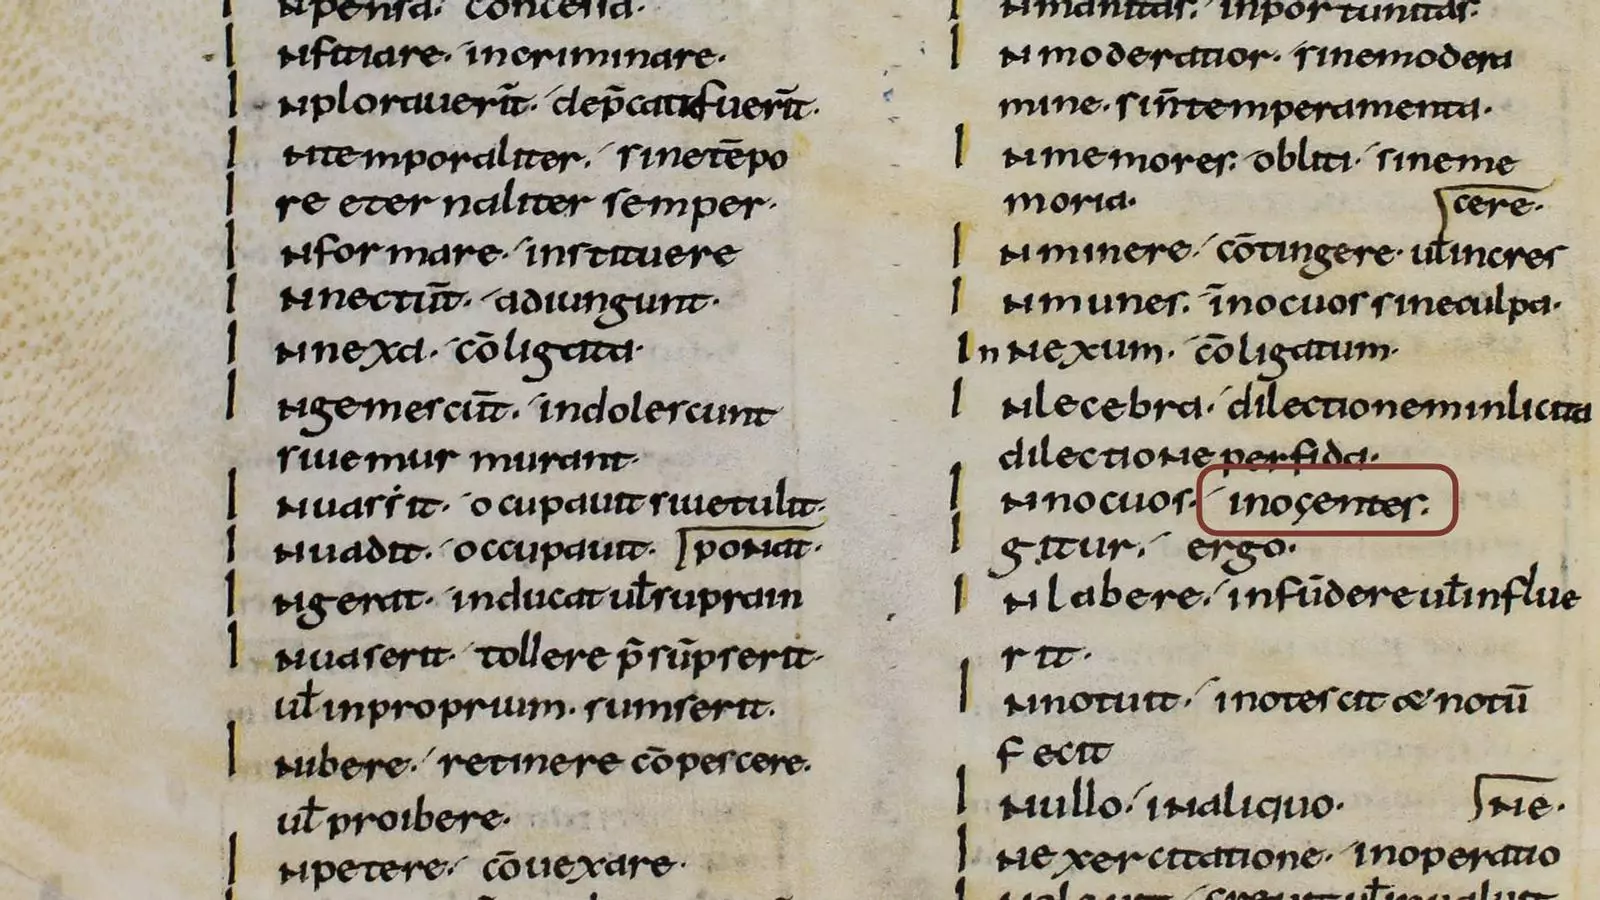 Inpensa. concessa.
Infitiare. incriminare.
Inplorauer̄t. dep̄catifuer̄t.
Intemporaliter. sinetēpo
re eternaliter semper.
Informare. instituere
Innectūt. adiungunt.
Innexa. cōligata.
Ingemescūt. indolescunt
siuemur murant.
Inuasit. ocupauitsiuetulit.
Inuadit. occupauit. ponat.
Ingerat. inducatuƚsuprain
Inuaserit. tollere p̄sūpserit.
uƚinproprium. sumserit.
Inibere. retinere cōpescere.
uƚproibere.
Inpetere. cōuexare.
Inmanitas. inportunitas.
Inmoderatior. sinemodera
mine. sin̄temperamenta.
Inmemores. obliti. sineme
moria. cere.
Inminere. cōtingere. uƚincres
Inmunes. īnocuossineculpa.
InNexum. cōligatum.
Inlecebra. dilectioneminlicita
dilectione perfida.
Innocuos. inoçentes.
Igitur. ergo.
Inlabere. infūdereuƚinflue
rit.
Innotuit. inotescit & notū
fecit
Inullo. inaliquo. Ne.
Inexercitatione. inoperatio